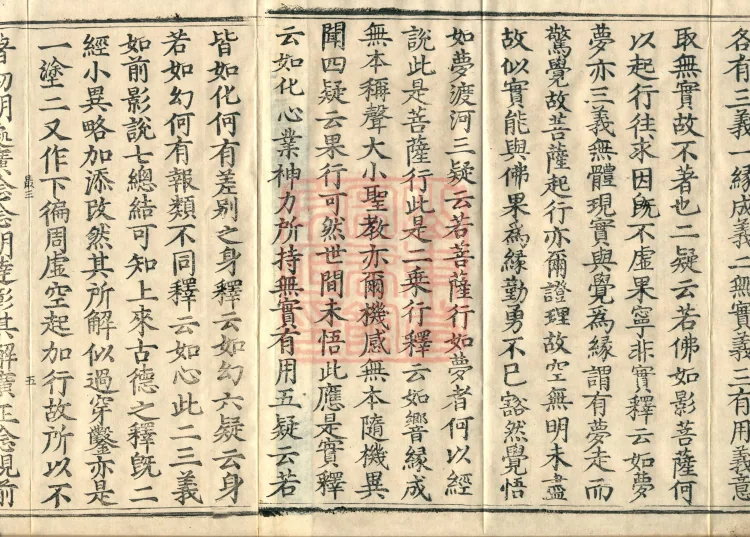 各有三義一緣成義二無實義三有用義意
取無實故不著也二疑云若佛如影菩薩何
以起行往求因旣不虛果寧非實釋云如夢
夢亦三義無體現實與覺爲緣謂有夢走而
驚覺故菩薩起行亦爾證理故空無明未盡
故似實能與佛果爲緣勤勇不已豁然覺悟
如夢渡河三疑云若菩薩行如夢者何以經
說此是菩薩行此是二乗行釋云如響緣成
無本稱聲大小聖教亦爾機感無本隨機異
聞四疑云果行可然世間未悟此應是實釋
云如化心業神力所持無實有用五疑云若
皆如化何有差別之身釋云如幻六疑云身
若如幻何有報類不同釋云如心此二三義
如前影說七總結可知上來古德之釋旣二
經小異略加添改然其所解似過穿鑿亦是
一塗二又作下徧周虛空起加行故所以不